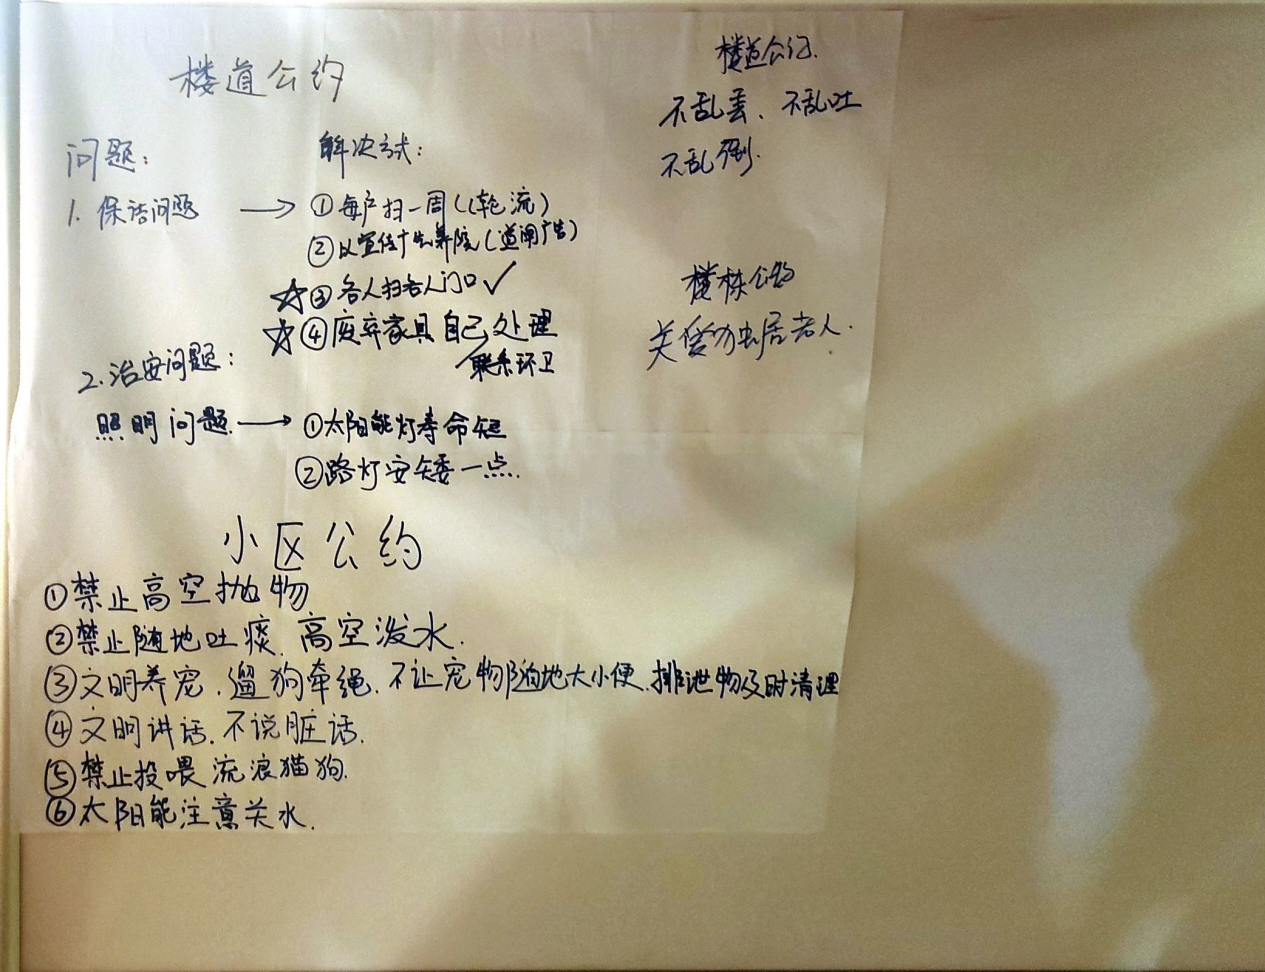 楼道公约
问题：
解决方式：
1. 保洁问题 → ①每户扫一周（轮流）
②以宣传广告养院（道闸广告）
☆③各人扫各人门口✓
☆④废弃家具自己处理
联系环卫
2.治安问题：
照明问题 → ①太阳能灯寿命短
②路灯安矮一点.
小区公约
①禁止高空抛物
②禁止随地吐痰.高空泼水.
③文明养宠.遛狗牵绳.不让宠物随地大小便.排泄物及时清理
④文明讲话.不说脏话.
⑤禁止投喂流浪猫狗.
⑥太阳能注意关水.
楼道公约.
不乱丢、不乱吐
不乱倒.
楼栋公约
关爱独居老人.